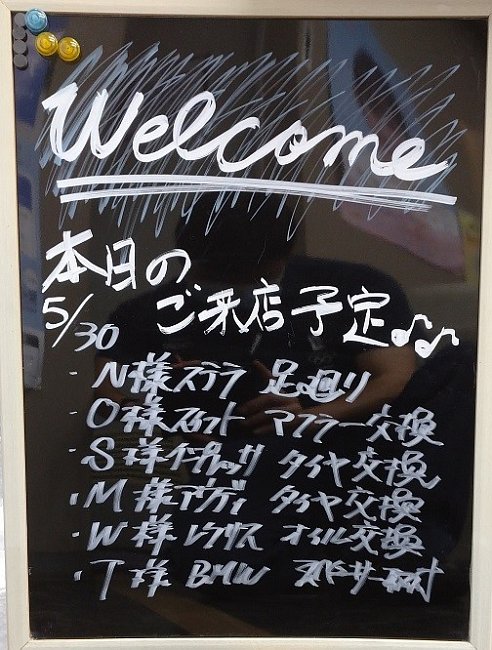 Welcome
本日の
5/30 ご来店予定♪♪
・N様 ステラ 足廻り
・O様 マフラー交換
・S様 タイヤ交換
・M様 アウディ タイヤ交換
・W様 レクサス オイル交換
・T様 BMW スペーサー取付